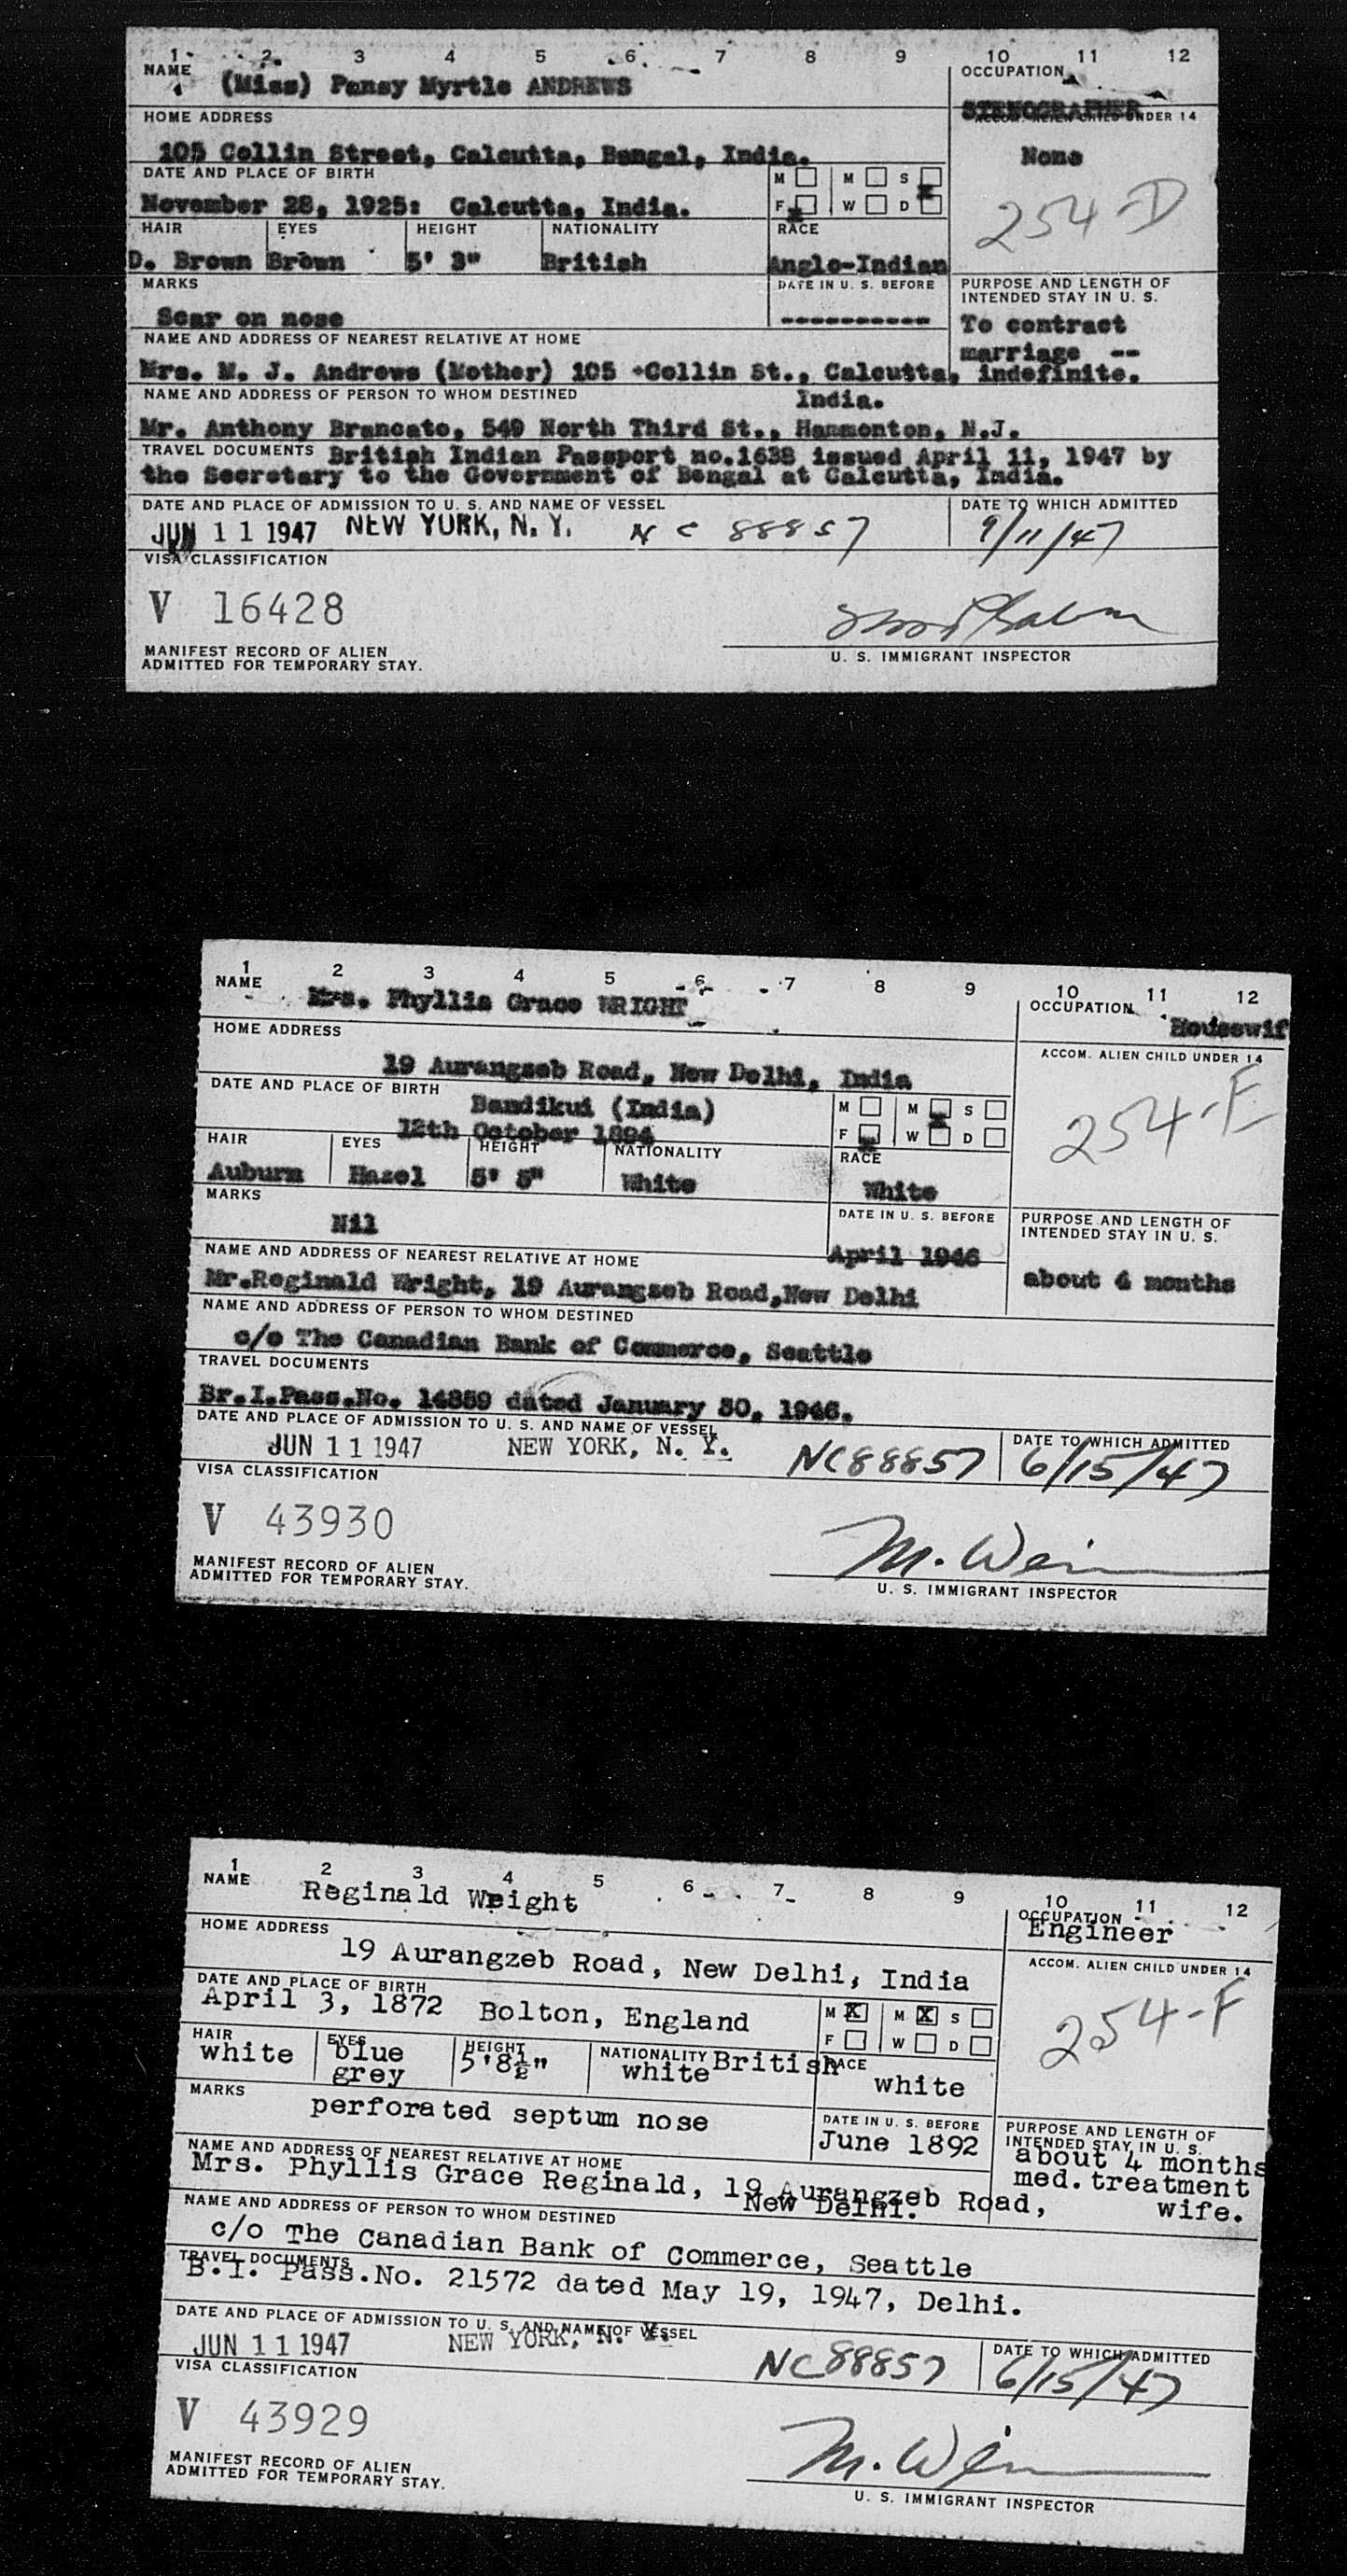 1 2 3 4 5 6 7 8 9 10 11 12
NAME OCCUPATION
(Miss) Pansy Myrtle ANDREWS
STENOGRAPHER
HOME ADDRESS ACCOM. ALIEN CHILD UNDER 14
105 Collin Street, Calcutta, Bengal, India. None
DATE AND PLACE OF BIRTH M M S
November 28, 1925: Calcutta, India. F W D
254-D
HAIR EYES HEIGHT NATIONALITY RACE
D. Brown Brown 5' 3" British Anglo-Indian
MARKS DATE IN U. S. BEFORE PURPOSE AND LENGTH OF
INTENDED STAY IN U. S.
Scar on nose ----------- To contract
NAME AND ADDRESS OF NEAREST RELATIVE AT HOME marriage --
Mrs. M. J. Andrews (Mother) 105 Collin St., Calcutta, indefinite.
NAME AND ADDRESS OF PERSON TO WHOM DESTINED India.
Mr. Anthony Brancato, 549 North Third St., Hammonton, N.J.
TRAVEL DOCUMENTS British Indian Passport no.1638 issued April 11, 1947 by
the Secretary to the Government of Bengal at Calcutta, India.
DATE AND PLACE OF ADMISSION TO U. S. AND NAME OF VESSEL DATE TO WHICH ADMITTED
JUN 11 1947 NEW YORK, N. Y. N C 88857 9/11/47
VISA CLASSIFICATION
V 16428
MANIFEST RECORD OF ALIEN
ADMITTED FOR TEMPORARY STAY. U. S. IMMIGRANT INSPECTOR
1 2 3 4 5 6 7 8 9 10 11 12
NAME OCCUPATION
Mrs. Phyllis Grace WRIGHT Housewif
HOME ADDRESS ACCOM. ALIEN CHILD UNDER 14
19 Aurangzeb Road, New Delhi, India
DATE AND PLACE OF BIRTH
Bandikui (India) M M S
12th October 1894 F W D
254-E
HAIR EYES HEIGHT NATIONALITY RACE
Auburn Hazel 5' 5" White White
MARKS DATE IN U. S. BEFORE PURPOSE AND LENGTH OF
INTENDED STAY IN U. S.
Nil
NAME AND ADDRESS OF NEAREST RELATIVE AT HOME April 1946
Mr.Reginald Wright, 19 Aurangzeb Road,New Delhi about 4 months
NAME AND ADDRESS OF PERSON TO WHOM DESTINED
c/o The Canadian Bank of Commerce, Seattle
TRAVEL DOCUMENTS
Br.I.Pass.No. 14859 dated January 30, 1946.
DATE AND PLACE OF ADMISSION TO U. S. AND NAME OF VESSEL DATE TO WHICH ADMITTED
JUN 11 1947 NEW YORK, N. Y. NC88857 6/15/47
VISA CLASSIFICATION
V 43930
M. Wein
MANIFEST RECORD OF ALIEN
ADMITTED FOR TEMPORARY STAY. U. S. IMMIGRANT INSPECTOR
1 2 3 4 5 6 7 8 9 10 11 12
NAME OCCUPATION
Reginald Wright Engineer
HOME ADDRESS ACCOM. ALIEN CHILD UNDER 14
19 Aurangzeb Road, New Delhi, India
DATE AND PLACE OF BIRTH
April 3, 1872 Bolton, England M X M X S
F W D
254-F
HAIR EYES HEIGHT NATIONALITY British RACE
white blue 5'8½" white white
grey
MARKS DATE IN U. S. BEFORE PURPOSE AND LENGTH OF
INTENDED STAY IN U. S.
perforated septum nose June 1892 about 4 months
NAME AND ADDRESS OF NEAREST RELATIVE AT HOME med. treatment
Mrs. Phyllis Grace Reginald, 19 Aurangzeb Road, wife.
New Delhi.
NAME AND ADDRESS OF PERSON TO WHOM DESTINED
c/o The Canadian Bank of Commerce, Seattle
TRAVEL DOCUMENTS
B.I. Pass.No. 21572 dated May 19, 1947, Delhi.
DATE AND PLACE OF ADMISSION TO U. S. AND NAME OF VESSEL DATE TO WHICH ADMITTED
JUN 11 1947 NEW YORK, N. Y. NC88857 6/15/47
VISA CLASSIFICATION
V 43929
M. Wein
MANIFEST RECORD OF ALIEN
ADMITTED FOR TEMPORARY STAY. U. S. IMMIGRANT INSPECTOR